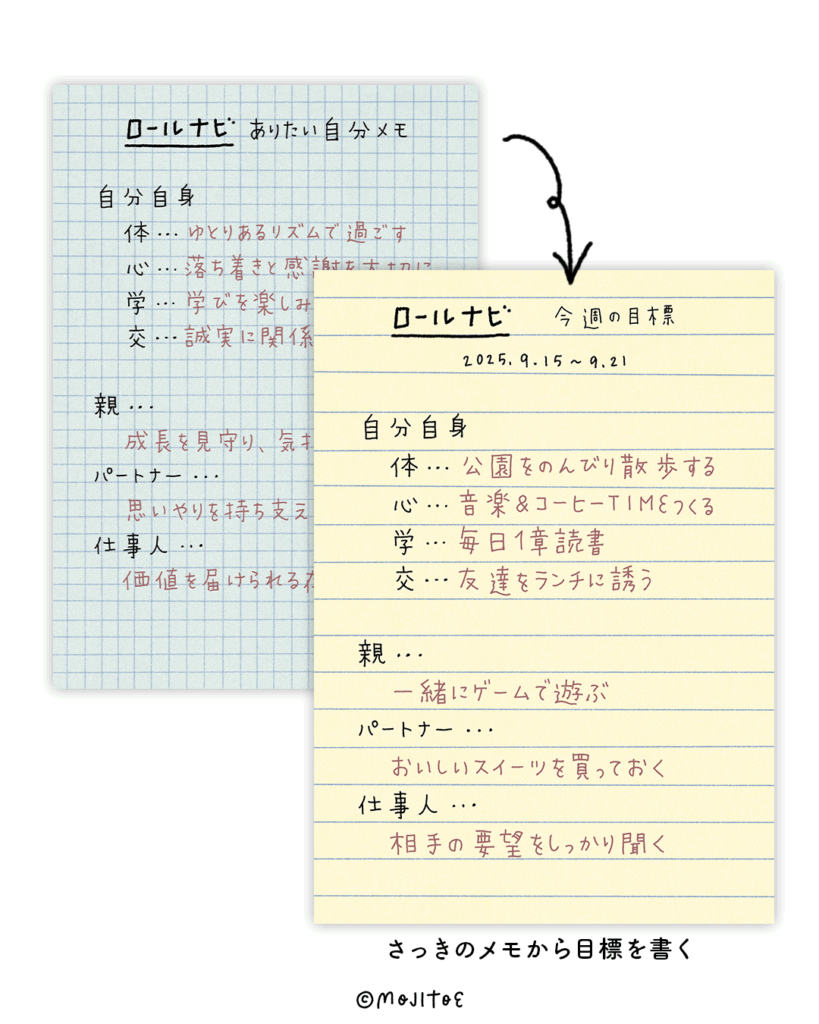 ロールナビ ありたい自分メモ
自分自身
体… ゆとりあるリズムで過ごす
心… 落ち着きと感謝を大切に
学… 学びを楽しみ
交… 誠実に関係
親…
成長を見守り、気持
パートナー…
思いやりを持ち支え
仕事人…
価値を届けられる存
ロールナビ 今週の目標
2025.9.15~9.21
自分自身
体… 公園をのんびり散歩する
心… 音楽&コーヒーTIMEつくる
学… 毎日1章読書
交… 友達をランチに誘う
親…
一緒にゲームで遊ぶ
パートナー…
おいしいスイーツを買っておく
仕事人…
相手の要望をしっかり聞く
さっきのメモから目標を書く
©MOJITOE